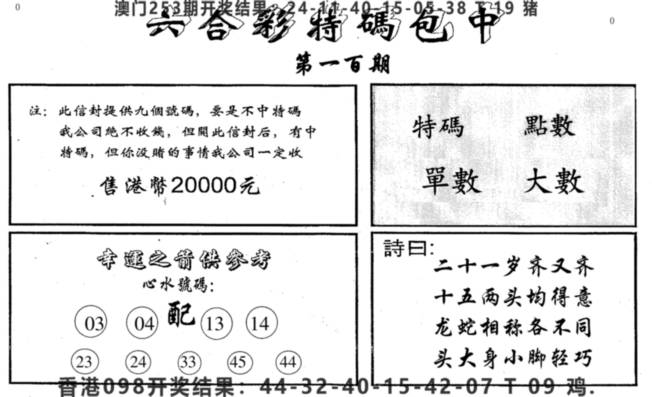 澳门253期开奖结果：24-11-40-15-05-38 T 19 猪
六合彩特碼包中
第一百期
注：此信封提供九個號碼，要是不中特碼
我公司绝不收錢，但開此信封后，有中
特碼，但你没賭的事情我公司一定收
售港幣20000元
特碼 點數
單數 大數
幸運之箭供參考
心水號碼：
03 04 配 13 14
23 24 33 45 44
詩曰：
二十一岁齐又齐
十五两头均得意
龙蛇相称各不同
头大身小脚轻巧
香港098开奖结果：44-32-40-15-42-07 T 09 鸡.